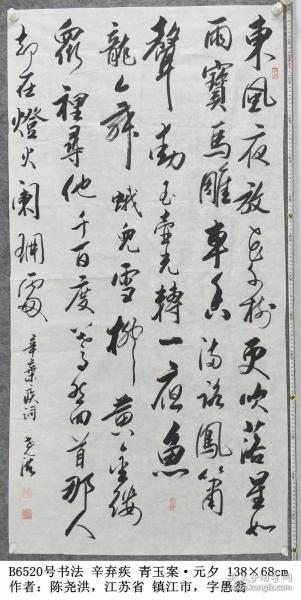 東風夜放花千樹更吹落星如
雨寶馬雕車香滿路鳳簫
聲動玉壺光轉一夜魚
龍舞蛾兒雪柳黃金縷
衆裡尋他千百度驀然回首那人
却在燈火闌珊處
辛棄疾詞
堯洪
B6520号书法 辛弃疾 青玉案·元夕 138×68cm
作者：陈尧洪，江苏省 镇江市，字愚翁